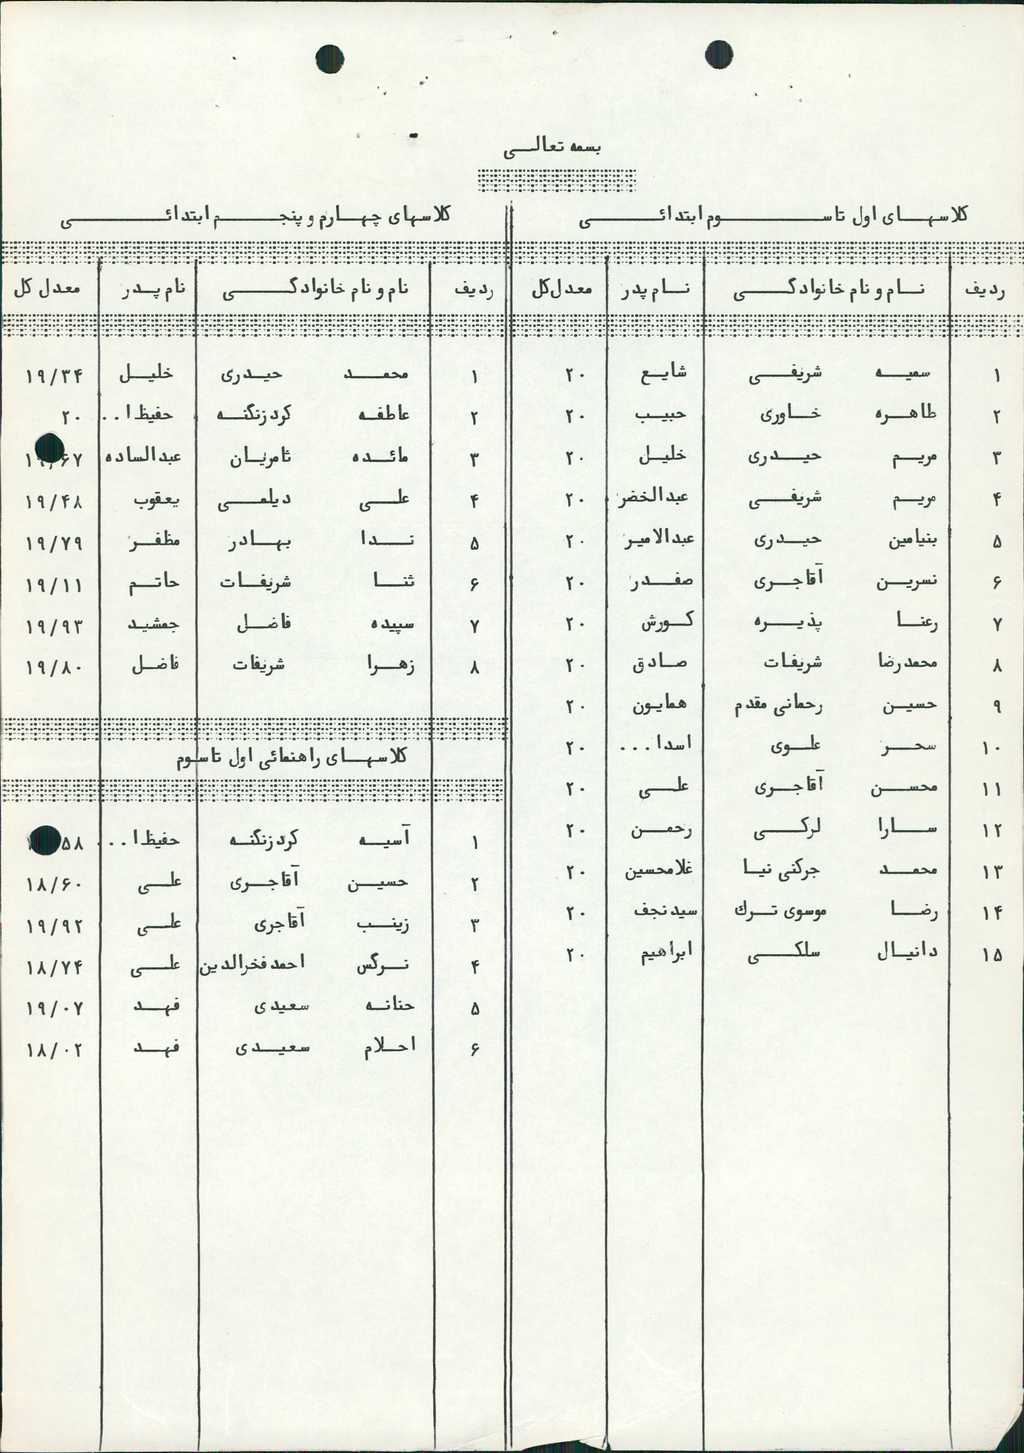 بسمه تعالی
کلاسهای اول تا سوم ابتدائی
ردیف نام و نام خانوادگی نام پدر معدل کل
۱ سمیه شریفی شایع ۲۰
۲ طاهره خاوری حبیب ۲۰
۳ مریم حیدری خلیل ۲۰
۴ مریم شریفی عبدالخضر ۲۰
۵ بنیامین حیدری عبدالامیر ۲۰
۶ نسرین آقاجری صفدر ۲۰
۷ رعنا پذیره کورش ۲۰
۸ محمدرضا شریفات صادق ۲۰
۹ حسین رحمانی مقدم همایون ۲۰
۱۰ سحر علوی اسدا... ۲۰
۱۱ محسن آقاجری علی ۲۰
۱۲ سارا لرکی رحمن ۲۰
۱۳ محمد جرکنی نیا غلامحسین ۲۰
۱۴ رضا موسوی ترک سیدنجف ۲۰
۱۵ دانیال سلکی ابراهیم ۲۰
کلاسهای چهارم و پنجم ابتدائی
ردیف نام و نام خانوادگی نام پدر معدل کل
۱ محمد حیدری خلیل ۱۹/۳۴
۲ عاطفه کردزنگنه حفیظ ا... ۲۰
۳ مائده ثامریان عبدالساده ۱۹/۶۷
۴ علی دیلمی یعقوب ۱۹/۴۸
۵ ندا بهادر مظفر ۱۹/۷۹
۶ ثنا شریفات حاتم ۱۹/۱۱
۷ سپیده فاضل جمشید ۱۹/۹۳
۸ زهرا شریفات فاضل ۱۹/۸۰
کلاسهای راهنمائی اول تا سوم
۱ آسیه کردزنگنه حفیظ ا...
۲ حسین آقاجری علی ۱۸/۶۰
۳ زینب آقاجری علی ۱۹/۹۲
۴ نرگس احمدفخرالدین علی ۱۸/۷۴
۵ حنانه سعیدی فهد ۱۹/۰۷
۶ احلام سعیدی فهد ۱۸/۰۲